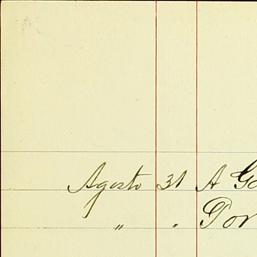 Agosto 31 A
" " Por